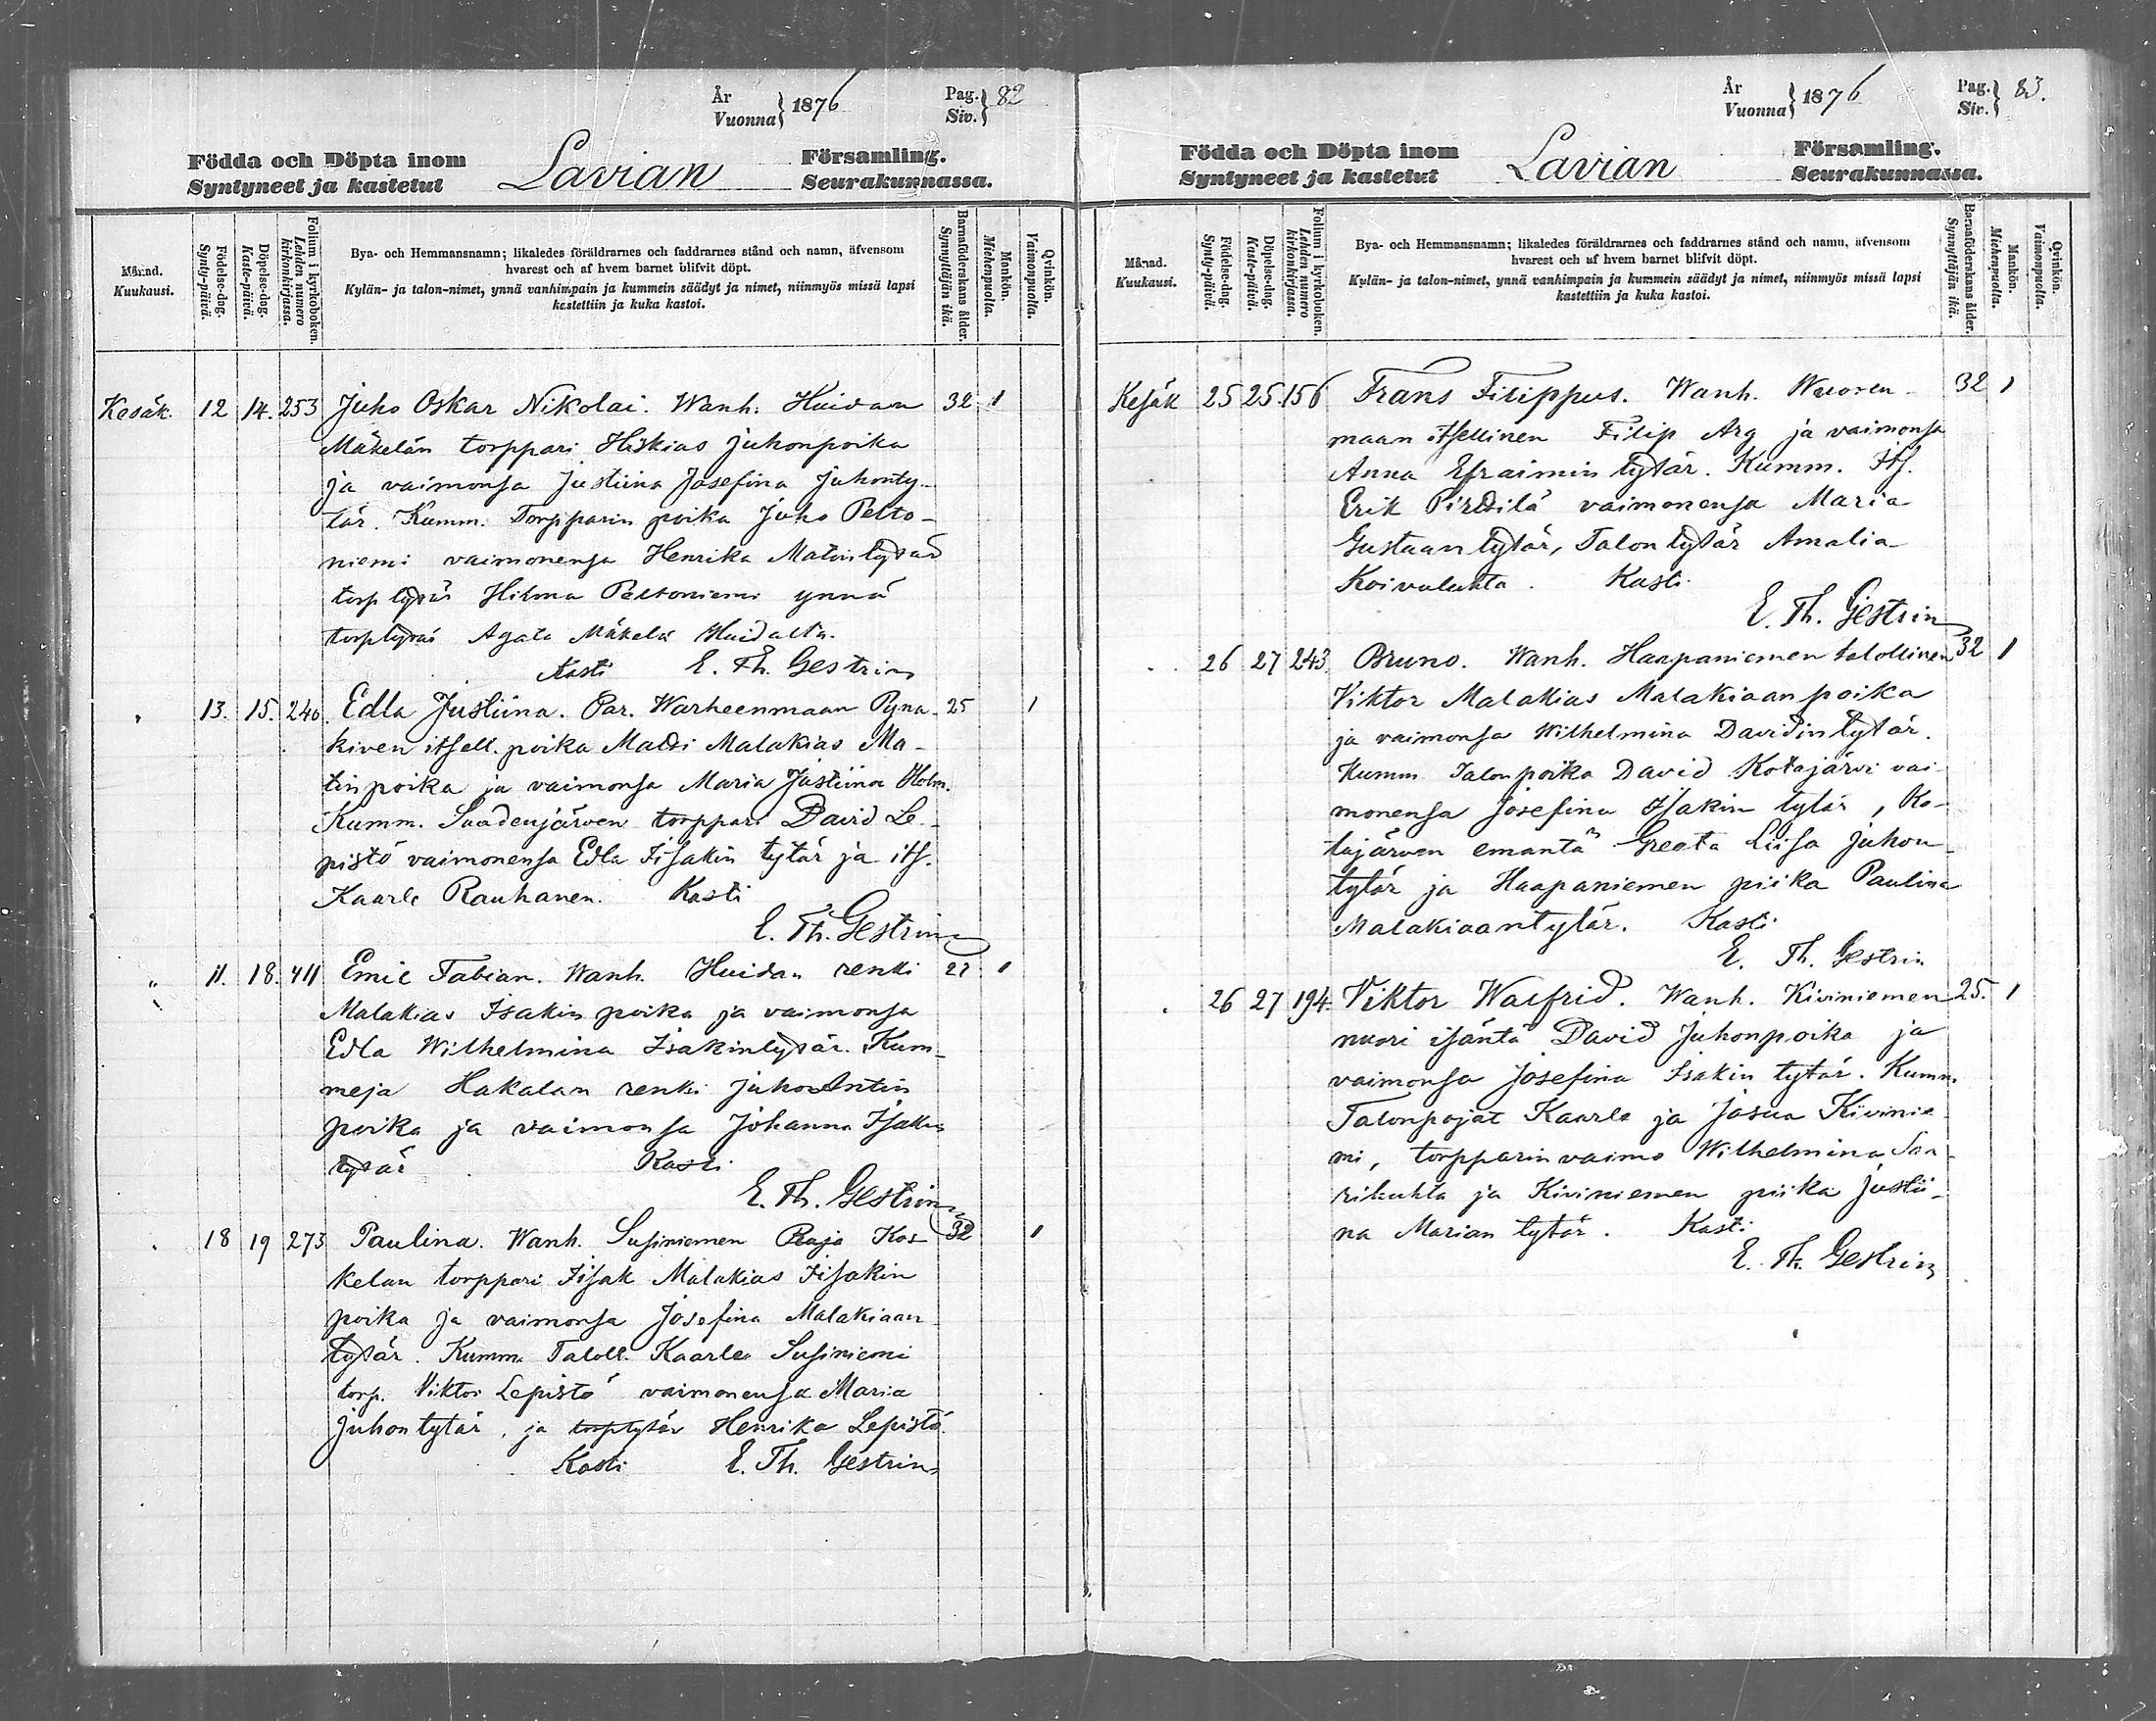 År
Vuonna } 1876
Pag.
Siv. } 82
Födda och Döpta inom
Syntyneet ja kastetut
Lavian
Församling.
Seurakunnassa.
Månad.
Kuukausi.
Födelse-dag.
Synty-päivä.
Döpelse-dag.
Kaste-päivä.
Folium i kyrkoboken.
Lehden numero
kirkonkirjassa.
Bya- och Hemmansnamn; likaledes föräldrarnes och faddrarnes stånd och namn, äfvensom
hvarest och af hvem barnet blifvit döpt.
Kylän- ja talon-nimet, ynnä vanhimpain ja kummein säädyt ja nimet, niinmyös missä lapsi
kastettiin ja kuka kastoi.
Barnaföderskans ålder.
Synnyttäjän ikä.
Mankön.
Miehenpuolta.
Qvinkön.
Vaimonpuolta.
Kesäk. 12 14. 253 Juho Oskar Nikolai. Wanh. Huidan 32 1
Mäkelän torppari Hiskias Juhonpoika
ja vaimonsa Justiina Josefina Juhonty-
tär. Kumm. Torpparin poika Juho Pelto-
niemi vaimonensa Henrika Matintytär
torp tytär Hilma Peltoniemi ynnä
torptytär Agata Mäkelä Huidalta.
Kasti E. Th. Gestrin
" 13. 15. 240. Edla Justiina. Par. Warheenmaan Pyna- 25 1
kiven itsell. poika Matti Malakias Ma-
tinpoika ja vaimonsa Maria Justiina Holm.
Kumm. Saadenjärven torppari David Le-
pistö vaimonensa Edla Iisakin tytär ja its.
Kaarle Rauhanen. Kasti
E. Th. Gestrin
" 11. 18. 411 Emil Fabian. Wanh. Huidan renki 27 1
Malakias Isakin poika ja vaimonsa
Edla Wilhelmina Isakintytär. Kum-
meja Hakalan renki Juho Antin
poika ja vaimonsa Johanna Isakin
tytär Kasti
E. Th. Gestrin
" 18 19 273 Paulina. Wanh. Susiniemen Raja Kos- 32 1
kelan torppari Iisak Malakias Iisakin
poika ja vaimonsa Josefina Malakiaan
tytär. Kumm. Taloll. Kaarle Susiniemi
torp. Viktor Lepistö vaimonensa Maria
Juhon tytär, ja torptytär Henrika Lepistö.
Kasti E. Th. Gestrin
År
Vuonna } 1876
Pag.
Siv. } 83.
Födda och Döpta inom
Syntyneet ja kastetut
Lavian
Församling.
Seurakunnassa.
Månad.
Kuukausi.
Födelse-dag.
Synty-päivä.
Döpelse-dag.
Kaste-päivä.
Folium i kyrkoboken.
Lehden numero
kirkonkirjassa.
Bya- och Hemmansnamn; likaledes föräldrarnes och faddrarnes stånd och namn, äfvensom
hvarest och af hvem barnet blifvit döpt.
Kylän- ja talon-nimet, ynnä vanhimpain ja kummein säädyt ja nimet, niinmyös missä lapsi
kastettiin ja kuka kastoi.
Barnaföderskans ålder.
Synnyttäjän ikä.
Mankön.
Miehenpuolta.
Qvinkön.
Vaimonpuolta.
Kesäk 25 25. 156 Frans Filippus. Wanh. Wuoren- 32 1
maan itsellinen Filip Arg ja vaimonsa
Anna Efraimin tytär. Kumm. Its.
Erik Pirttilä vaimonensa Maria
Gustaan tytär, Talon tytär Amalia
Koivuluhta. Kasti
E. Th. Gestrin
" 26 27 243. Bruno. Wanh. Haapaniemen talollinen 32 1
Viktor Malakias Malakiaan poika
ja vaimonsa Wilhelmina Davidin tytär.
Kumm Talon poika David Kotajärvi vai-
monensa Josefina Isakin tytär, Ko-
tajärven emäntä Greeta Liisa Juhon-
tytär ja Haapaniemen piika Paulina
Malakiaantytär. Kasti
E. Th. Gestrin
" 26 27 194. Viktor Walfrid. Wanh. Kiviniemen 25. 1
nuori isäntä David Juhonpoika ja
vaimonsa Josefina Isakin tytär. Kumm.
Talonpojat Kaarle ja Josua Kivinie-
mi, torpparin vaimo Wilhelmina Saa-
riluhta ja Kiviniemen piika Justii-
na Marian tytär. Kasti
E. Th. Gestrin